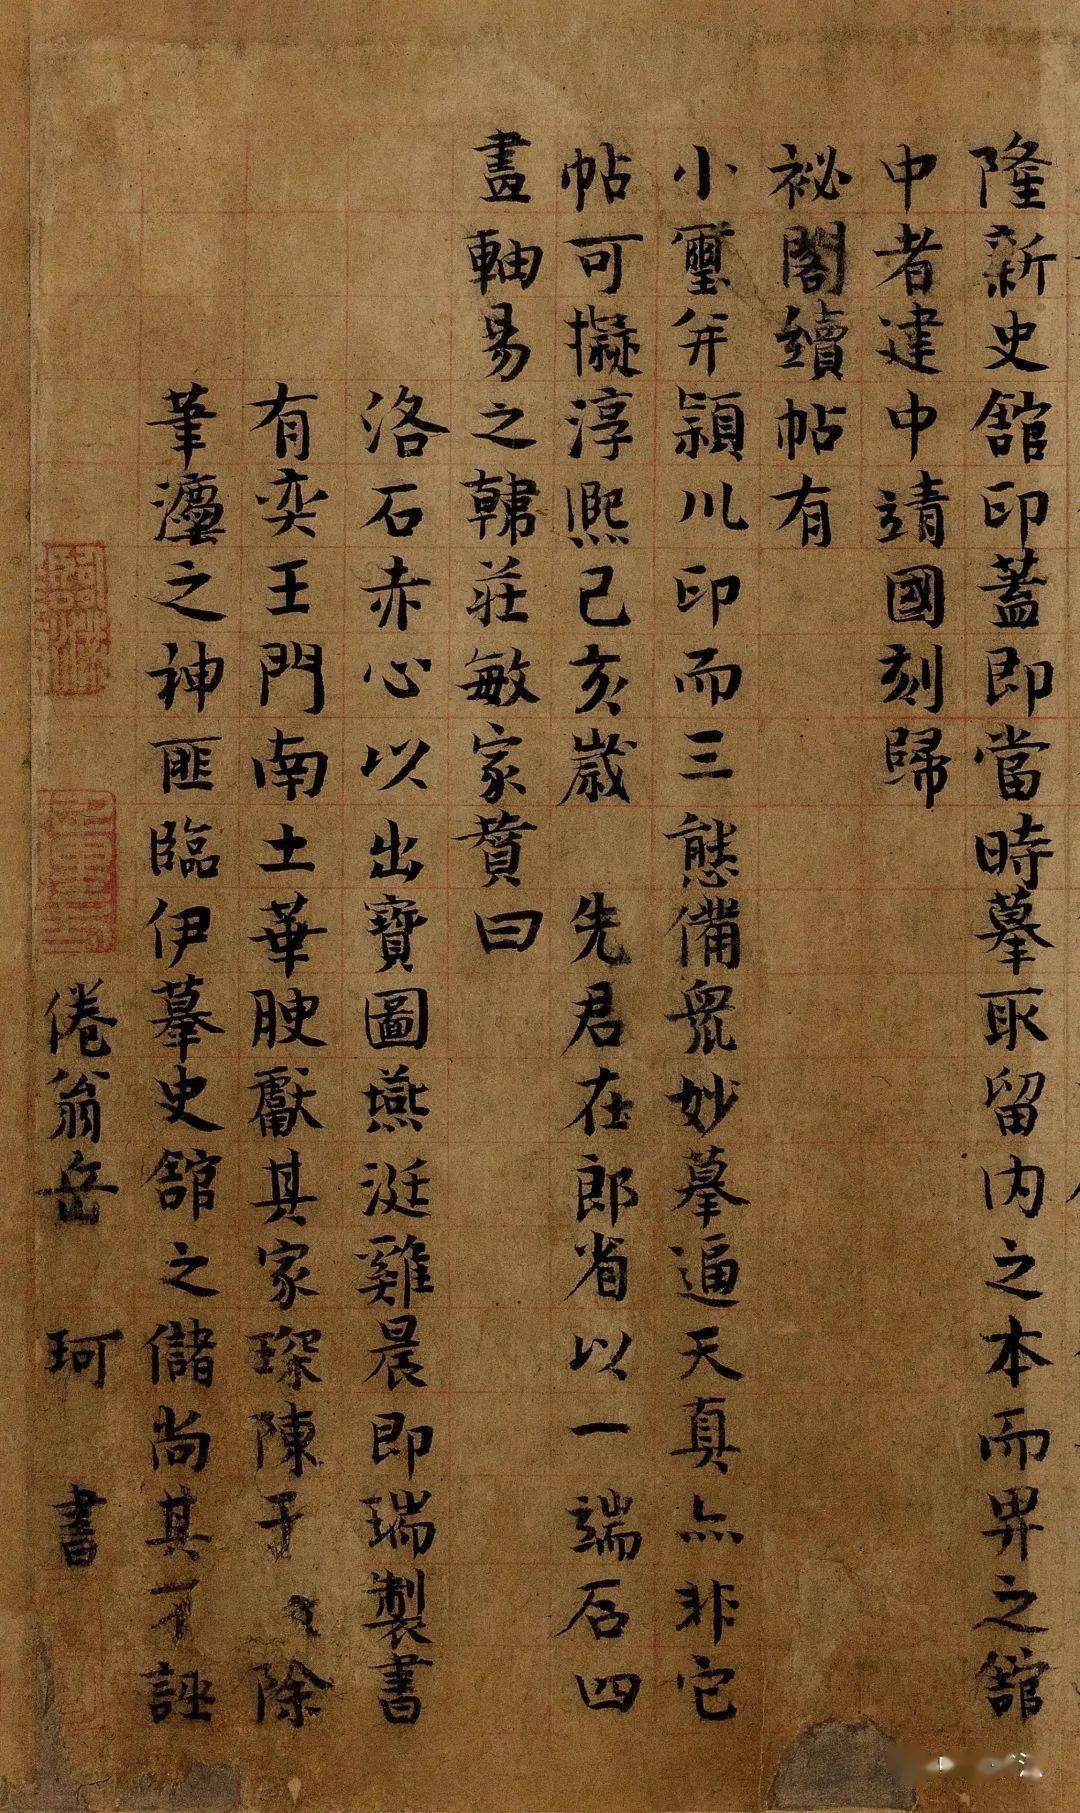 隆新史舘印蓋即當時摹取留内之本而畀之舘
中者建中靖國刻歸
祕閣續帖有
小璽并潁川印而三態備衆妙摹逼天真亦非它
帖可擬淳熙己亥歲 先君在郎省以一端石四
畫軸易之韓莊敏家贊曰
洛石赤心以出寶圖燕涎雞晨即瑞製書
有奕王門南土華腴獻其家琛陳于 除
筆灋之神匪臨伊摹史舘之儲尚其不誣
倦翁岳珂書